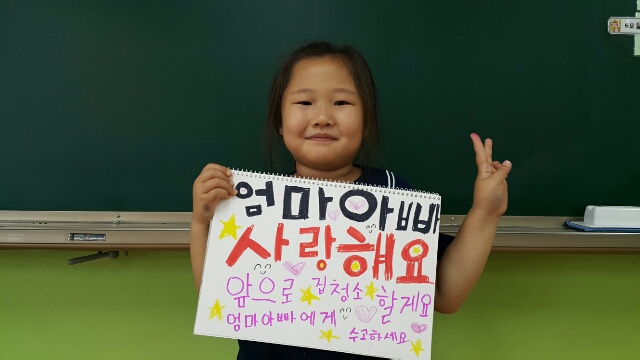 엄마아빠
사랑해요
앞으로 집청소 할게요
엄마아빠에게 수고하세요